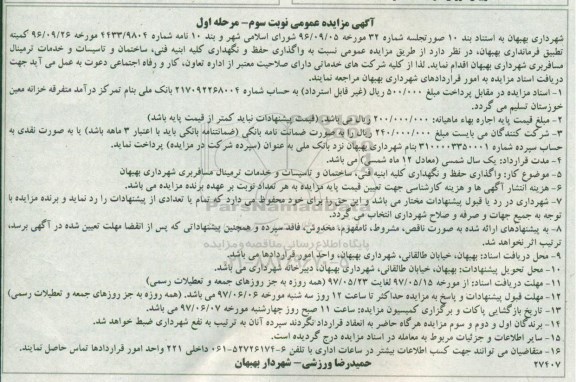 آگهی مزایده عمومی نوبت سوم- مرحله اول
شهرداری بهبهان به استناد بند ۱۰ صورتجلسه شماره ۳۲ مورخه ۹۶/۰۹/۰۵ شورای اسلامی شهر و بند ۱۰ نامه شماره ۴۴۳۳/۹۸۰۴ مورخه ۹۶/۰۹/۲۶ کمیته
تطبیق فرمانداری بهبهان، در نظر دارد از طریق مزایده عمومی نسبت به واگذاری حفظ و نگهداری کلیه ابنیه فنی، ساختمان و تاسیسات و خدمات ترمینال
مسافربری شهرداری بهبهان اقدام نماید. لذا از کلیه شرکت های خدماتی دارای صلاحیت معتبر از اداره تعاون، کار و رفاه اجتماعی دعوت به عمل می آید جهت
دریافت اسناد مزایده به امور قراردادهای شهرداری بهبهان مراجعه نمایند.
۱- اسناد مزایده در مقابل پرداخت مبلغ ۵۰۰/۰۰۰ ریال (غیر قابل استرداد) به حساب شماره ۲۱۷۰۹۲۲۶۸۰۰۴ بانک ملی بنام تمرکز درآمد متفرقه خزانه معین
خوزستان تسلیم می گردد.
۲- مبلغ قیمت پایه اجاره بهاء ماهیانه: ۲۰۰/۰۰۰/۰۰۰ ریال می باشد. (قیمت پیشنهادات نباید کمتر از قیمت پایه باشد)
۳- شرکت کنندگان می بایست مبلغ ۲۴۰/۰۰۰/۰۰۰ ریال را به صورت ضمانت نامه بانکی (ضمانتنامه بانکی باید با اعتبار ۳ ماهه باشد) یا به صورت نقدی به
حساب سپرده شماره ۳۱۰۰۰۰۳۳۵۰۰۰۱ بنام شهرداری بهبهان نزد بانک ملی به عنوان (سپرده شرکت در مزایده) پرداخت نماید.
۴- مدت قرارداد: یک سال شمسی (معادل ۱۲ ماه شمسی) می باشد.
۵- موضوع کار: واگذاری حفظ و نگهداری کلیه ابنیه فنی، ساختمان و تاسیسات و خدمات ترمینال مسافربری شهرداری بهبهان
۶- هزینه انتشار آگهی ها و هزینه کارشناسی جهت تعیین قیمت پایه مزایده به هر تعداد نوبت بر عهده برنده مزایده می باشد.
۷- شهرداری در رد یا قبول پیشنهادات مختار می باشد و این حق را برای خود محفوظ می دارد که تمام یا تعدادی از پیشنهادات را رد نماید و برنده مزایده با
توجه به جمیع جهات و صرفه و صلاح شهرداری انتخاب می گردد.
۸- به پیشنهادهای ارائه شده به صورت ناقص، مشروط، نامفهوم، مخدوش، فاقد سپرده و همچنین پیشنهاداتی که پس از انقضا مهلت تعیین شده در آگهی برسد،
ترتیب اثر نخواهد شد.
۹- محل دریافت اسناد: بهبهان، خیابان طالقانی، شهرداری بهبهان، واحد امور قراردادها می باشد.
۱۰- محل تحویل پیشنهادات: بهبهان، خیابان طالقانی، شهرداری بهبهان، دبیرخانه شهرداری می باشد.
۱۱- مهلت دریافت اسناد: از مورخه ۹۷/۰۵/۱۵ لغایت ۹۷/۰۵/۲۳ (همه روزه به جز روزهای جمعه و تعطیلات رسمی)
۱۲- مهلت قبول پیشنهادات و پاسخ به مزایده حداکثر تا ساعت ۱۲ روز سه شنبه مورخه ۹۷/۰۶/۰۶ می باشد. (همه روزه به جز روزهای جمعه و تعطیلات رسمی)
۱۳- تاریخ بازگشایی پاکات و برگزاری کمیسیون مزایده: ساعت ۱۱ صبح روز چهارشنبه مورخه ۹۷/۰۶/۰۷ می باشد.
۱۴- برندگان اول و دوم و سوم مزایده هرگاه حاضر به انعقاد قرارداد نگردند سپرده آنان به ترتیب به نفع شهرداری ضبط خواهد شد.
۱۵- سایر اطلاعات و جزئیات مربوط به معامله در اسناد مزایده درج گردیده است.
۱۶- متقاضیان می توانند جهت کسب اطلاعات بیشتر در ساعات اداری با تلفن ۶-۵۲۷۲۶۱۷۴-۰۶۱ داخلی ۲۲۱ واحد امور قراردادها تماس حاصل نمایند.
حمیدرضا ورزشی- شهردار بهبهان
۲۷۴۰۷
ParsNamadData
پایگاه اطلاع رسانی مناقصه و مزایده